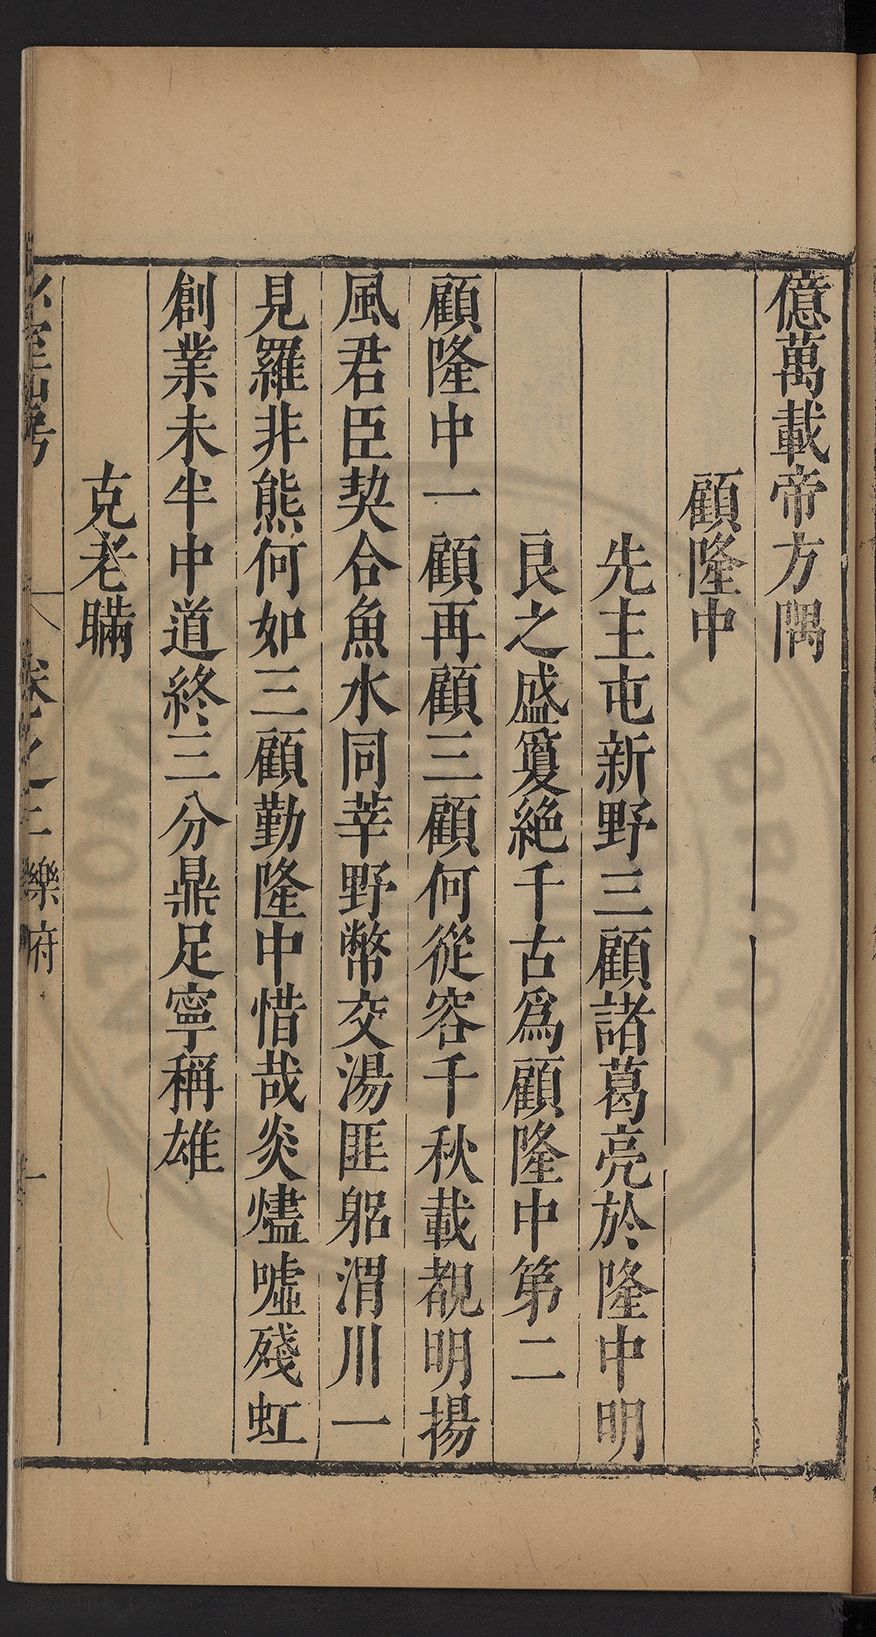 億萬載帝方隅
顧隆中
先主屯新野三顧諸葛亮於隆中明
良之盛敻絶千古爲顧隆中第二
顧隆中一顧再顧三顧何從容千秋載覩明揚
風君臣契合魚水同莘野幣交湯匪躬渭川一
見羅非熊何如三顧勤隆中惜哉炎燼噓殘虹
創業未半中道終三分鼎足寧稱雄
克老瞞
卷之二樂府